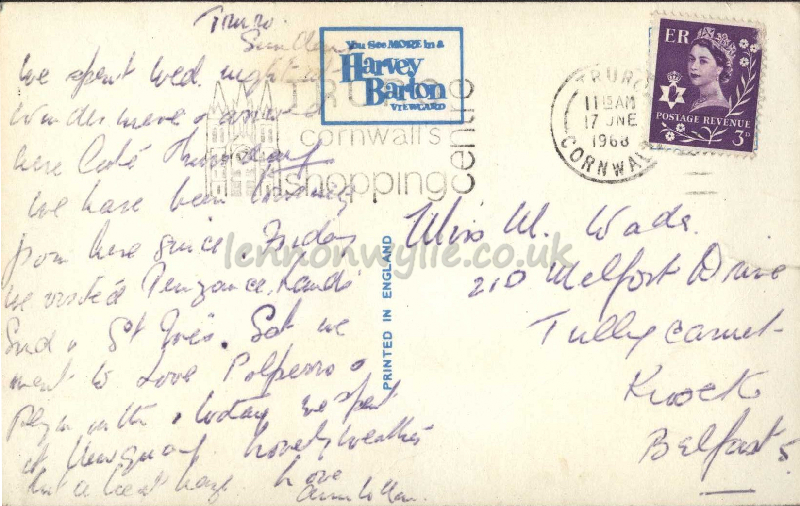 Truro.
Sunday
We spent Wed. night at
Windermere & arrived
here late Thursday
We have been touring
from here since. Friday
we visited Penzance, Lands
End, St Ives. Sat we
went to Looe Polperro &
Plymouth & today we spent
at Newquay. Lovely weather
but a heat haze. Love
You See MORE in a
Harvey
Barton
VIEWCARD
TRURO
cornwall's
shopping
centre
TRURO
11 15 AM
17 JNE
1968
CORNWALL
ER
POSTAGE REVENUE
3D
PRINTED IN ENGLAND
Miss M. Wade.
210 Melfort Drive
Tullycarnet
Knock
Belfast 5
lennonwylie.co.uk